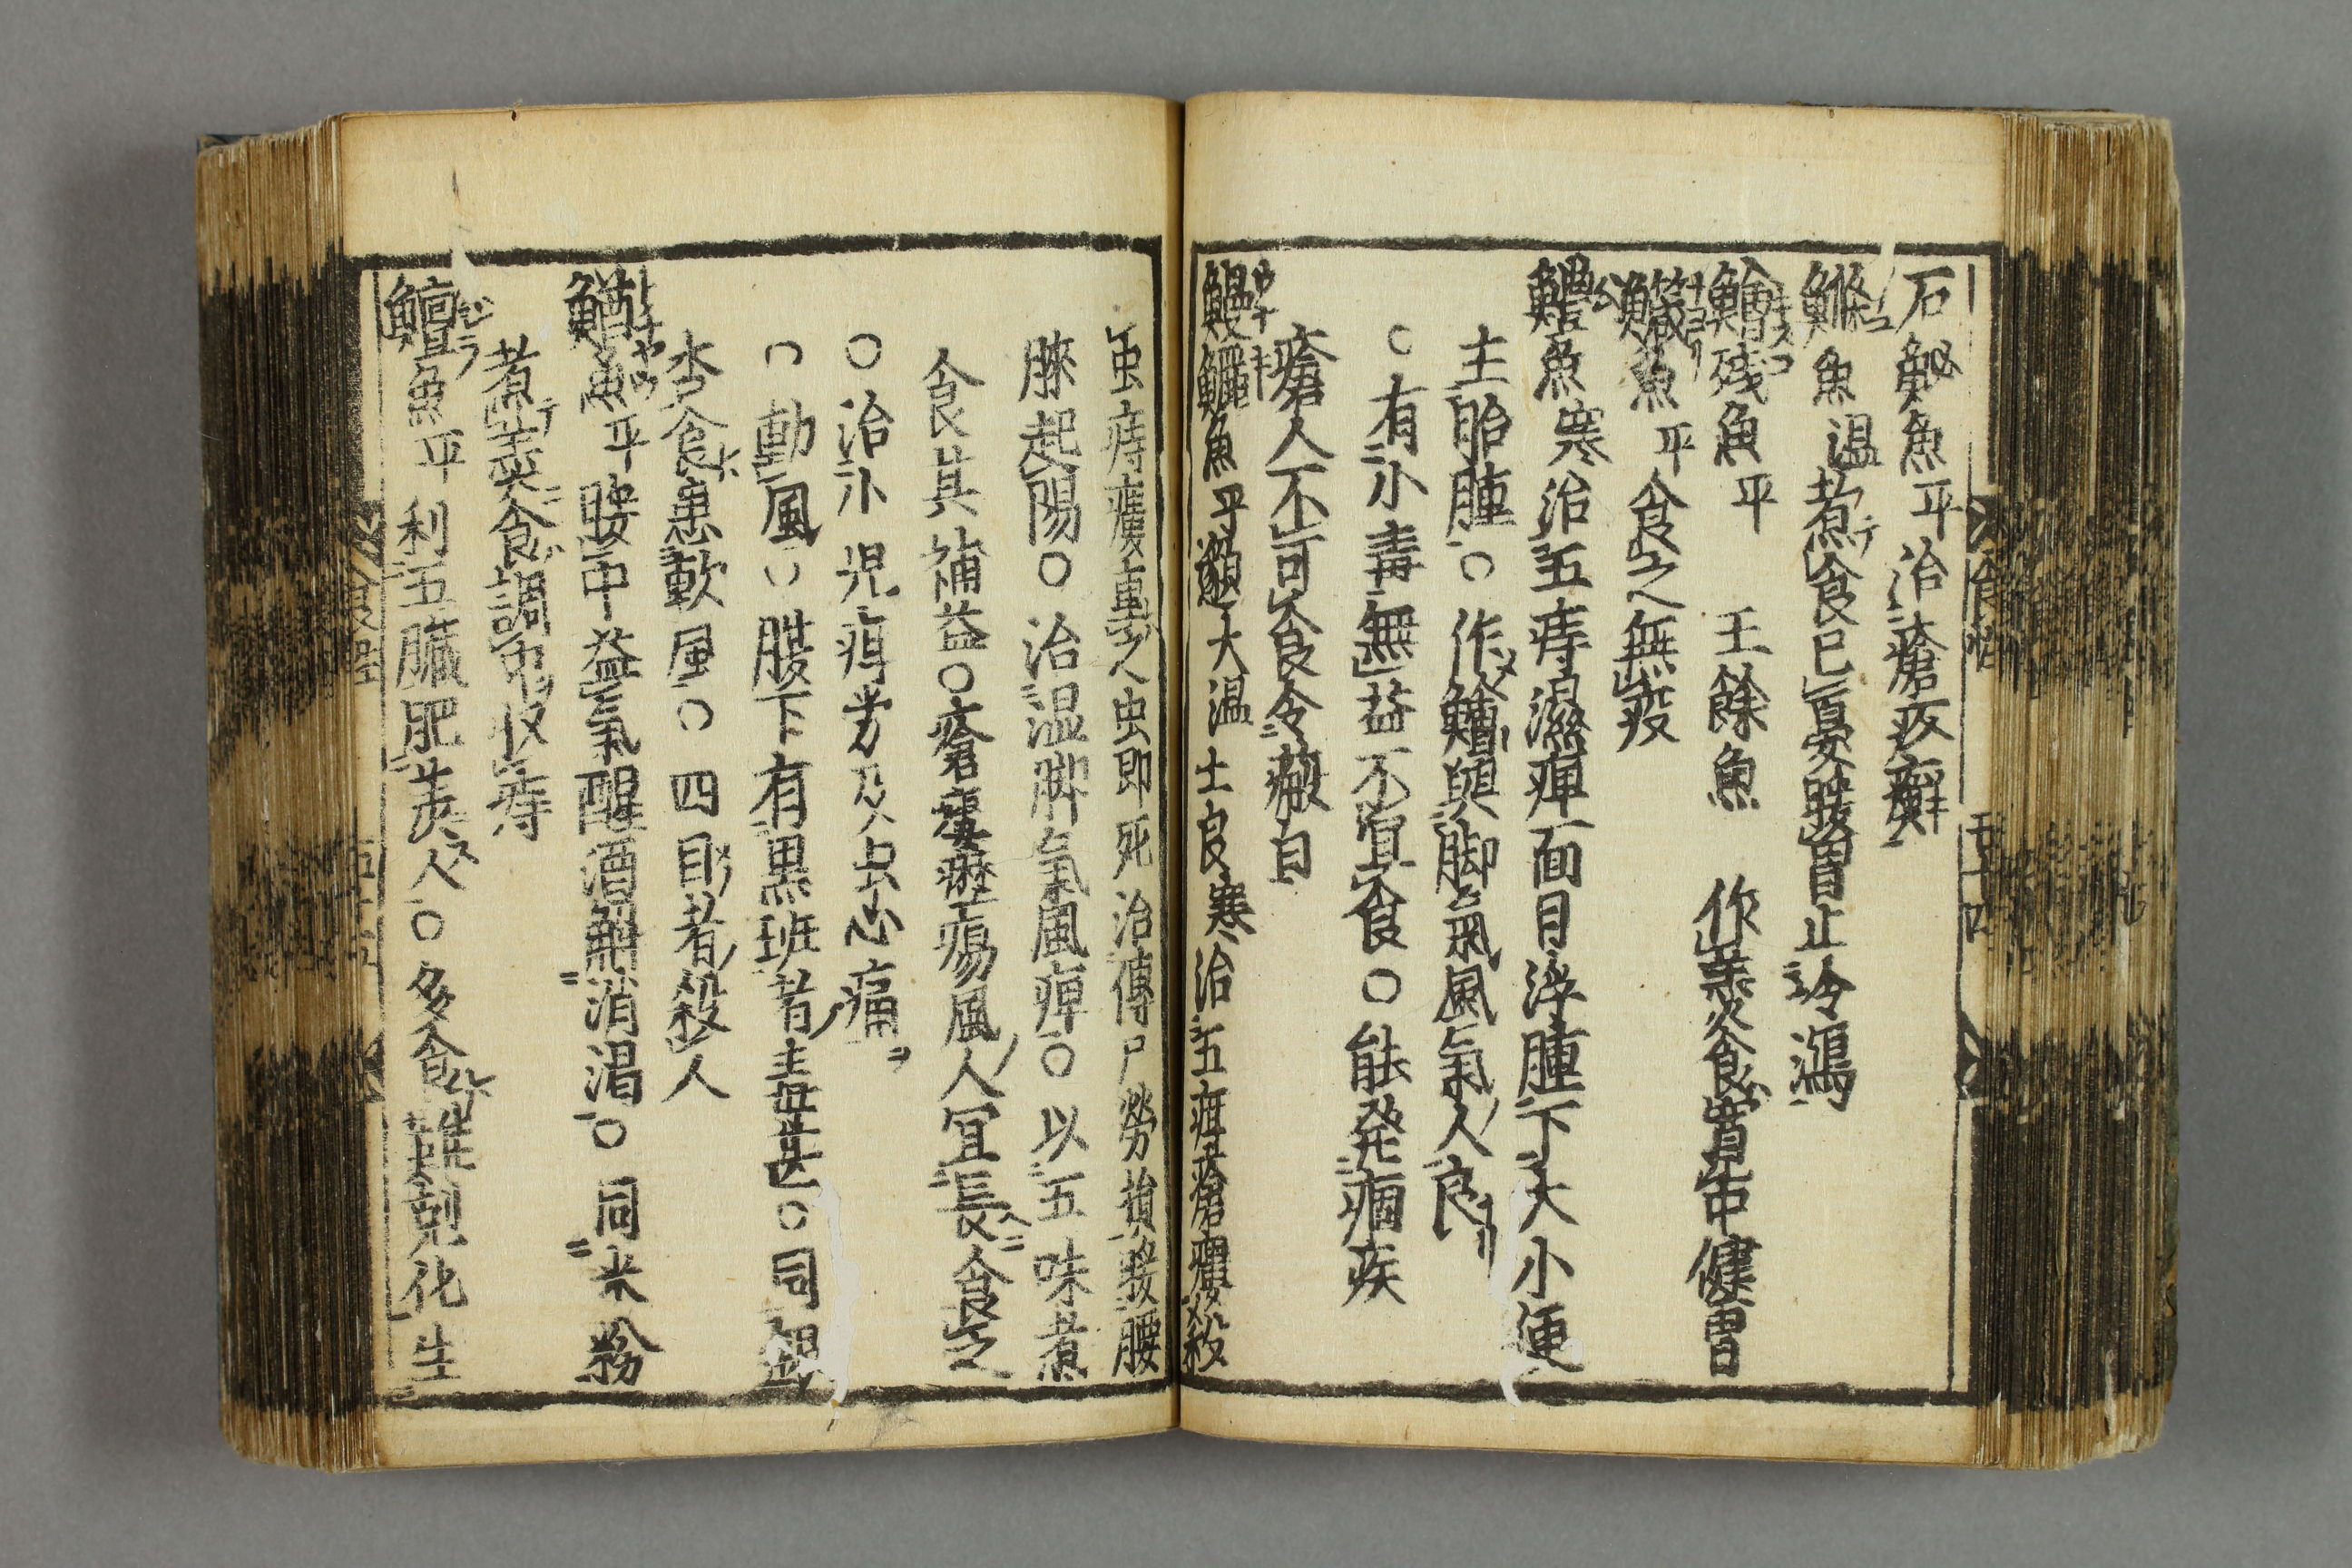 石鮅魚平治瘡疥癬
鰷魚温煮食已憂暖胃止冷瀉
鱠残魚平 王餘魚 作羹食寛中健胃
鱵魚平食之無疫
鱧魚寒治五痔濕痺面目浮腫下大小便
主胎腫○作鱠與脚氣風氣人良
○有小毒無益不宜食○能発痼疾
瘡人不可食令瘢白
鰻鱺魚平 大温 士良寒治五痔瘡瘻殺
虫痔瘻 之虫即死治傳尸勞損 腰
起陽○治湿脚氣風痺○以五味煮
食其補益○瘡瘻癧瘍風人宜長食之
○治小児疳労及虫心痛
○動風○腹下有黒班者毒甚○同銀
杏食患軟風○四目者殺人
鰌魚平暖中益氣醒酒解消渇○同米粉
煮羹食調中収痔
鱣魚平利五臓肥美人○多食難尅化生
五十四
五十五